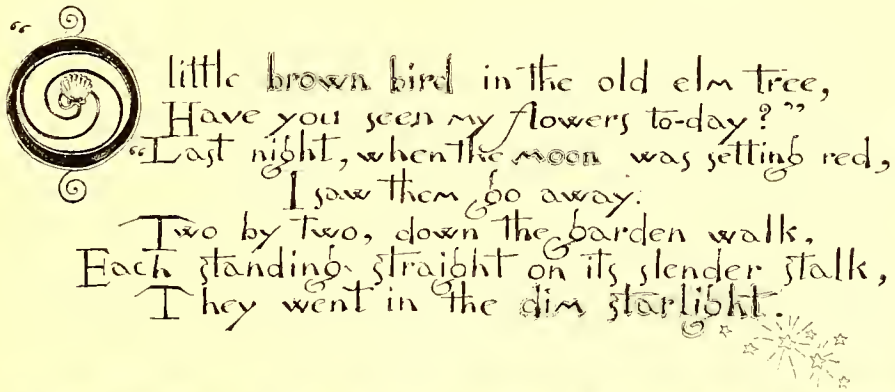 “O little brown bird in the old elm tree,
Have you seen my flowers to-day?”
“Last night, when the moon was setting red,
I saw them go away.
Two by two, down the garden walk,
Each standing straight on its slender stalk,
They went in the dim starlight.